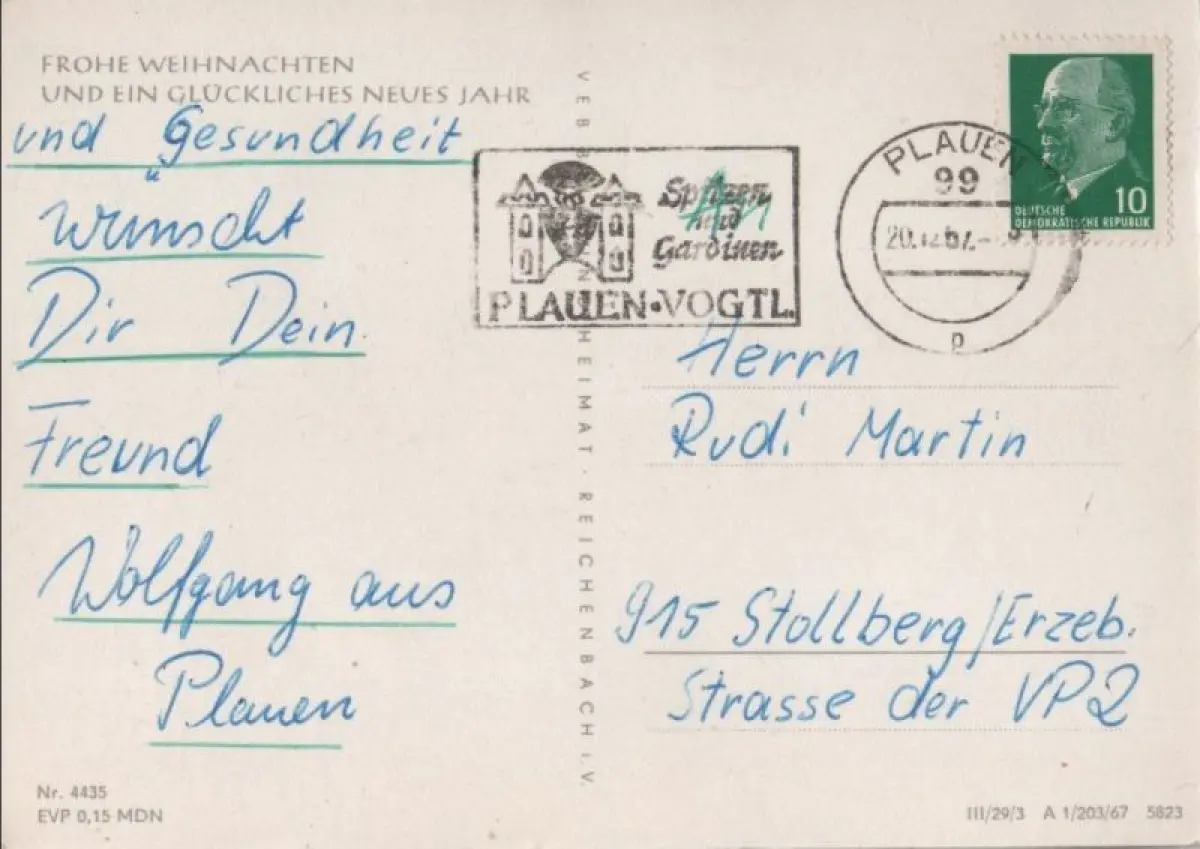 FROHE WEIHNACHTEN
UND EIN GLÜCKLICHES NEUES JAHR
und Gesundheit
wünscht
Dir Dein
Freund
Wolfgang aus
Plauen
Nr. 4435
EVP 0,15 MDN
HEIMAT · REICHENBACH i. V.
Spitzen
und
Gardinen
PLAUEN·VOGTL.
PLAUEN
99
20.12.67.-
p
10
DEUTSCHE
DEMOKRATISCHE REPUBLIK
An
Herrn
Rudi Martin
915 Stollberg/Erzeb.
Strasse der VP2
III/29/3 A 1/203/67 5823